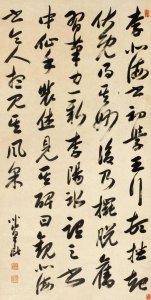 李北海書初學王行頓挫起
伏既得其妙後乃擺脫舊
習筆力一新李陽冰謂之書
中仙手裴休見其碑曰觀北海
書令人想見其風采